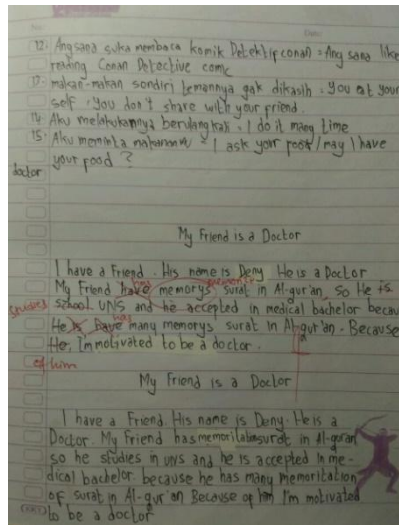 12. Angsana suka membaca komik Detektif conan = Angsana like
reading Conan Detective comic
13. makan-makan sendiri temannya gak dikasih = You eat your
self, You don't share with your friend.
14. Aku melakukannya berulang kali = I do it many time
15. Aku meminta makananmu = I ask your food / may I have
your food ?
doctor
My Friend is a Doctor
I have a Friend. His name is Deny He is a Doctor
My Friend have memorys surat in Al-qur'an, so He is
studies
school UNS and he accepted in medical bachelor becau
has
He is have many memorys surat in Al-qur'an. Because
He, I'm motivated to be a doctor.
of him
My Friend is a Doctor
I have a Friend. His name is Deny. He is a
Doctor. My Friend has surat in Al-quran
so he studies in UNS and he is accepted in me-
dical bachelor because he has many memoritation
of surat in Al-qur'an Because of him I'm motivated
to be a doctor